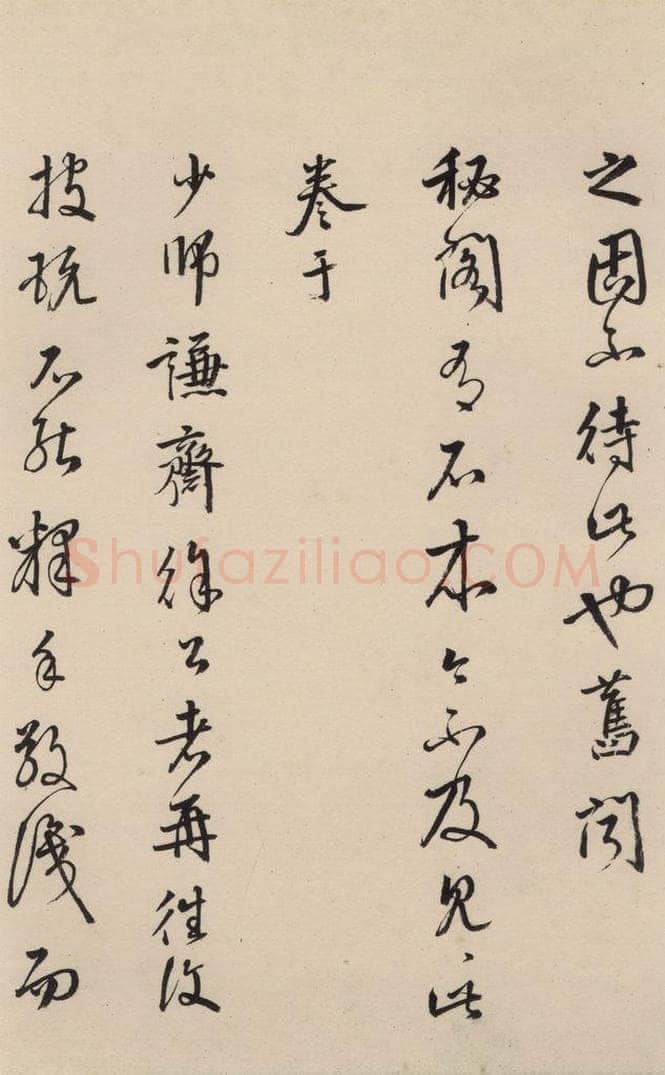 之固不待此也舊聞
秘閣有石本今不及見々此
卷于
少師謙齋徐公者再往復
披玩不能釋手敬識而
Shufaziliao.COM